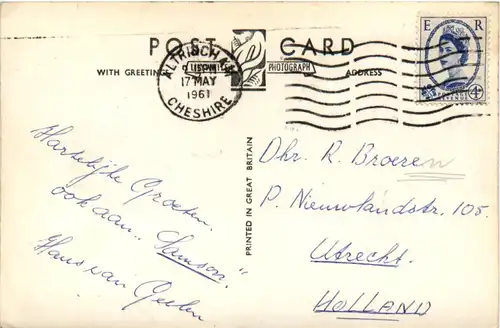 POST CARD
WITH GREETINGS
PHOTOGRAPH
ADDRESS
ALTRINCHAM
17 MAY
1961
CHESHIRE
E R
POSTAGE
REVENUE
4D
Hartelijke Groeten.
ook aan „Samson."
Hans van Geelen
PRINTED IN GREAT BRITAIN
Dhr. R. Broeren
P. Nieuwlandstr. 105.
Utrecht.
HOLLAND